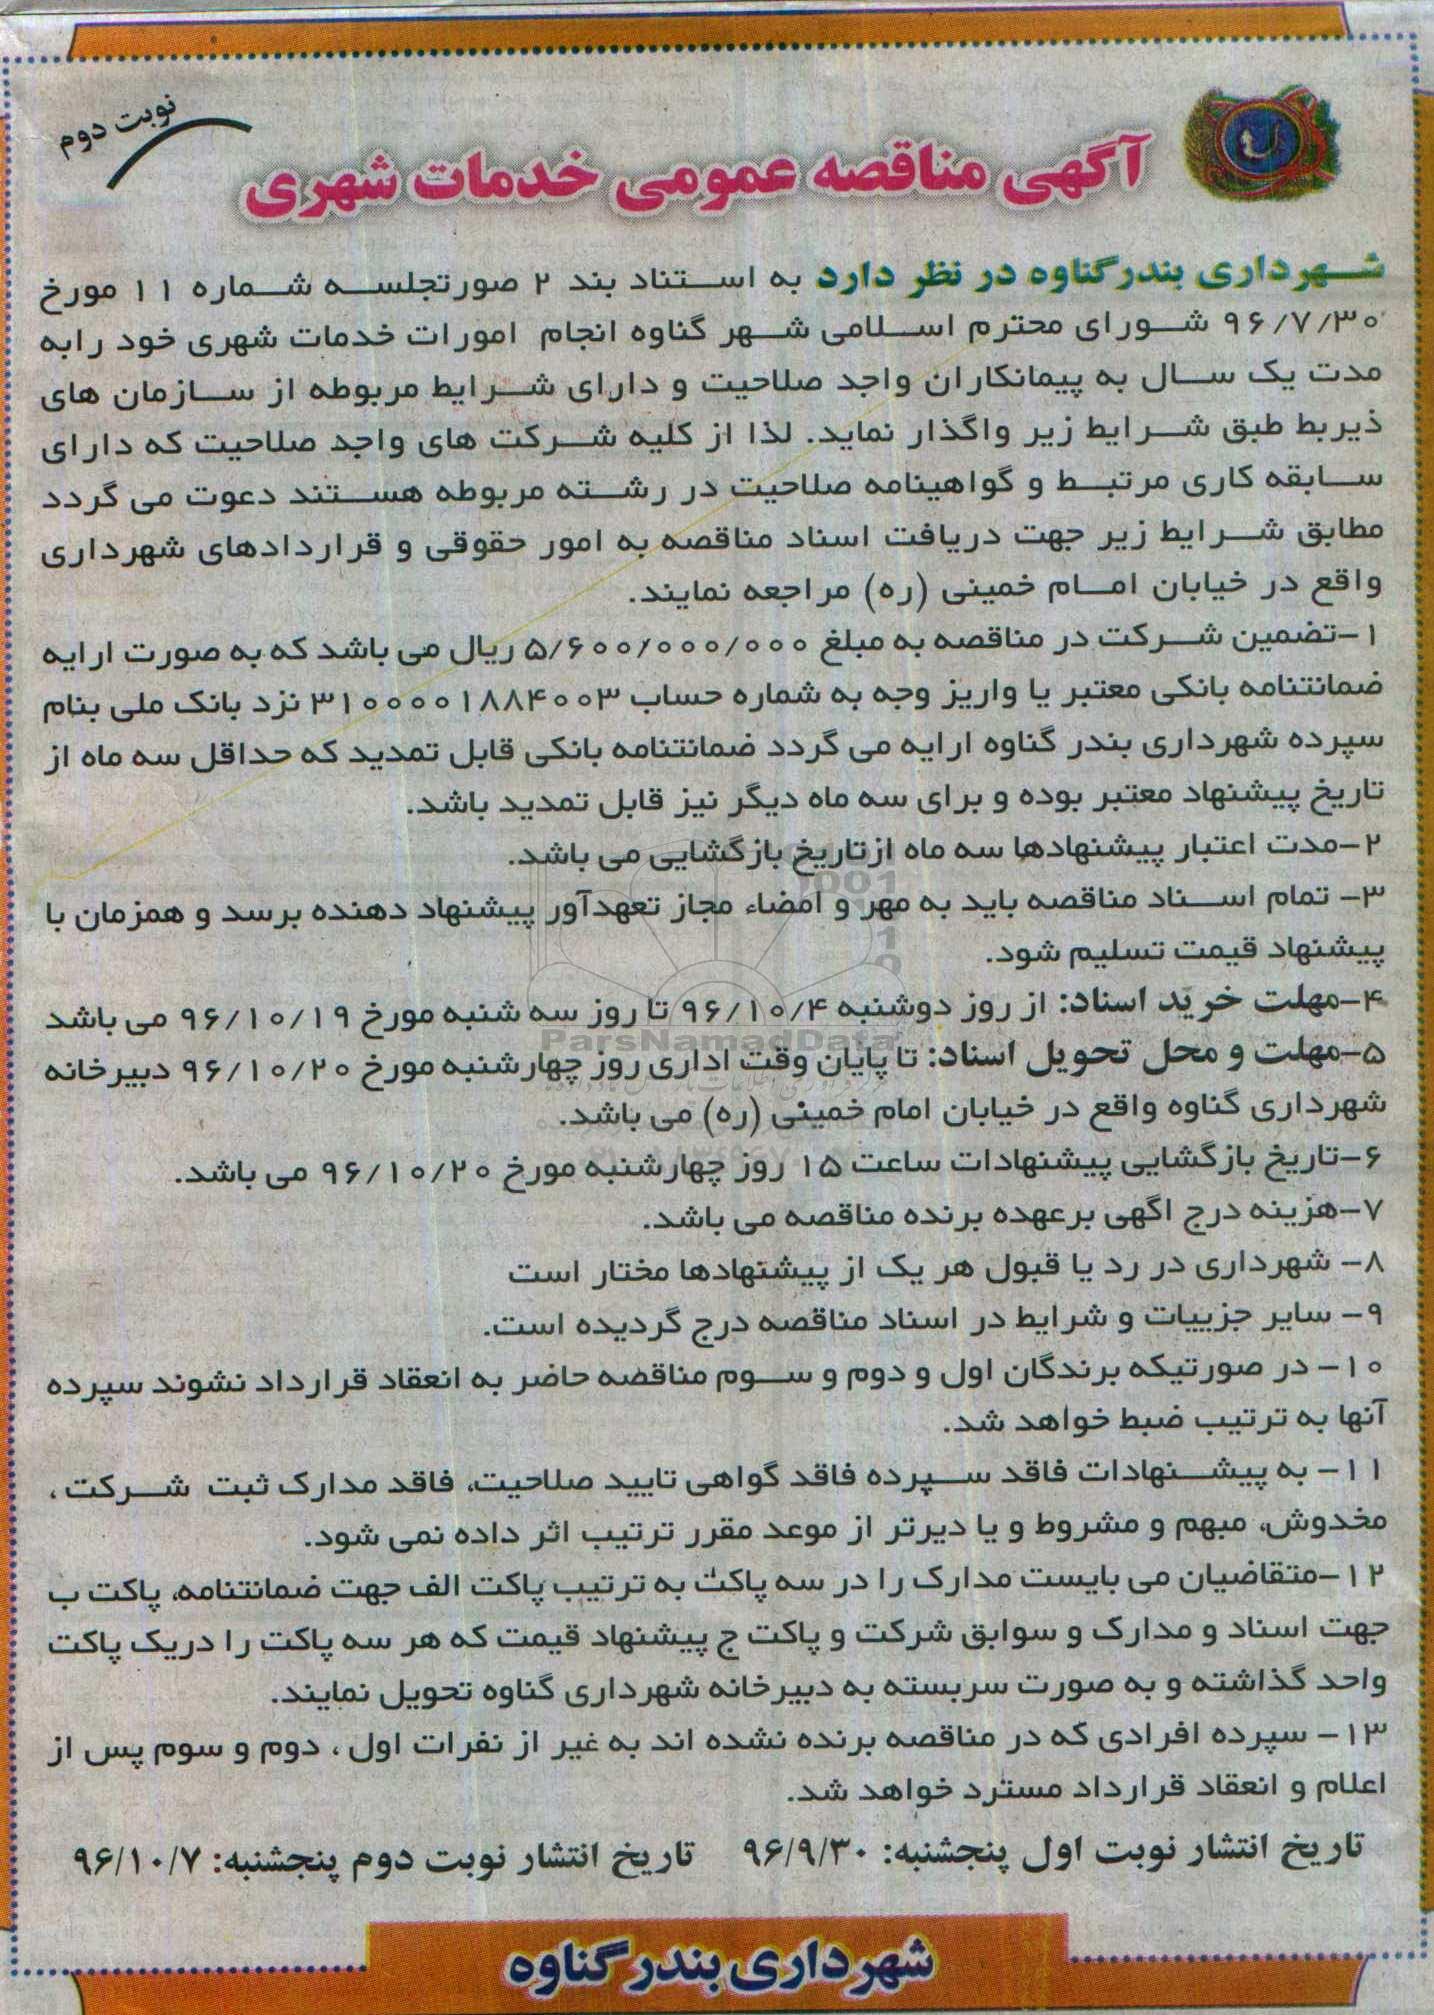 نوبت دوم
آگهی مناقصه عمومی خدمات شهری
شهرداری بندرگناوه در نظر دارد به استناد بند ۲ صورتجلسه شماره ۱۱ مورخ
۹۶/۷/۳۰ شورای محترم اسلامی شهر گناوه انجام امورات خدمات شهری خود رابه
مدت یک سال به پیمانکاران واجد صلاحیت و دارای شرایط مربوطه از سازمان های
ذیربط طبق شرایط زیر واگذار نماید. لذا از کلیه شرکت های واجد صلاحیت که دارای
سابقه کاری مرتبط و گواهینامه صلاحیت در رشته مربوطه هستند دعوت می گردد
مطابق شرایط زیر جهت دریافت اسناد مناقصه به امور حقوقی و قراردادهای شهرداری
واقع در خیابان امام خمینی (ره) مراجعه نمایند.
۱-تضمین شرکت در مناقصه به مبلغ ۵/۶۰۰/۰۰۰/۰۰۰ ریال می باشد که به صورت ارایه
ضمانتنامه بانکی معتبر یا واریز وجه به شماره حساب ۳۱۰۰۰۰۱۸۸۴۰۰۳ نزد بانک ملی بنام
سپرده شهرداری بندر گناوه ارایه می گردد ضمانتنامه بانکی قابل تمدید که حداقل سه ماه از
تاریخ پیشنهاد معتبر بوده و برای سه ماه دیگر نیز قابل تمدید باشد.
۲-مدت اعتبار پیشنهادها سه ماه ازتاریخ بازگشایی می باشد.
۳- تمام اسناد مناقصه باید به مهر و امضاء مجاز تعهدآور پیشنهاد دهنده برسد و همزمان با
پیشنهاد قیمت تسلیم شود.
۴-مهلت خرید اسناد: از روز دوشنبه ۹۶/۱۰/۴ تا روز سه شنبه مورخ ۹۶/۱۰/۱۹ می باشد
ParsNamadData
۵-مهلت و محل تحویل اسناد: تا پایان وقت اداری روز چهارشنبه مورخ ۹۶/۱۰/۲۰ دبیرخانه
شهرداری گناوه واقع در خیابان امام خمینی (ره) می باشد.
۶-تاریخ بازگشایی پیشنهادات ساعت ۱۵ روز چهارشنبه مورخ ۹۶/۱۰/۲۰ می باشد.
۷-هزینه درج اگهی برعهده برنده مناقصه می باشد.
۸- شهرداری در رد یا قبول هر یک از پیشنهادها مختار است
۹- سایر جزییات و شرایط در اسناد مناقصه درج گردیده است.
۱۰- در صورتیکه برندگان اول و دوم و سوم مناقصه حاضر به انعقاد قرارداد نشوند سپرده
آنها به ترتیب ضبط خواهد شد.
۱۱- به پیشنهادات فاقد سپرده فاقد گواهی تایید صلاحیت، فاقد مدارک ثبت شرکت ،
مخدوش، مبهم و مشروط و یا دیرتر از موعد مقرر ترتیب اثر داده نمی شود.
۱۲-متقاضیان می بایست مدارک را در سه پاکت به ترتیب پاکت الف جهت ضمانتنامه، پاکت ب
جهت اسناد و مدارک و سوابق شرکت و پاکت ج پیشنهاد قیمت که هر سه پاکت را دریک پاکت
واحد گذاشته و به صورت سربسته به دبیرخانه شهرداری گناوه تحویل نمایند.
۱۳- سپرده افرادی که در مناقصه برنده نشده اند به غیر از نفرات اول ، دوم و سوم پس از
اعلام و انعقاد قرارداد مسترد خواهد شد.
تاریخ انتشار نوبت اول پنجشنبه: ۹۶/۹/۳۰ تاریخ انتشار نوبت دوم پنجشنبه: ۹۶/۱۰/۷
شهرداری بندر گناوه